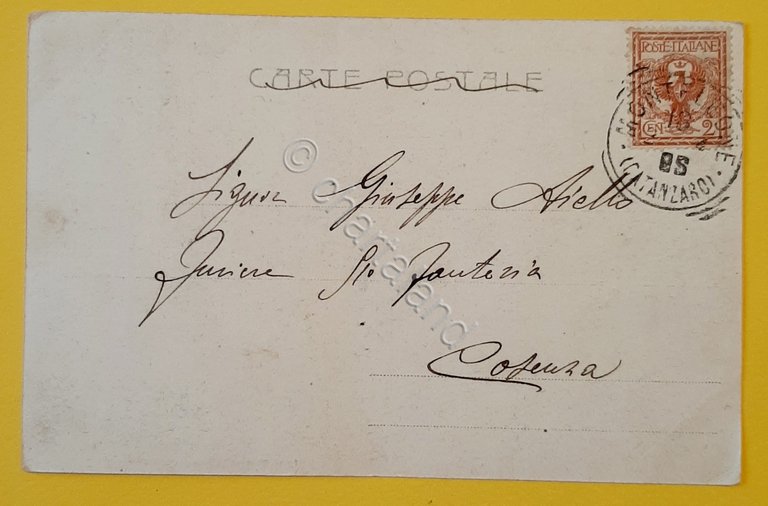 CARTE POSTALE
POSTE ITALIANE
CEN 2
MONTELEONE
05
(CATANZARO)
Signor Giuseppe Aiello
Furiere Fanteria
Cosenza
© chartaland